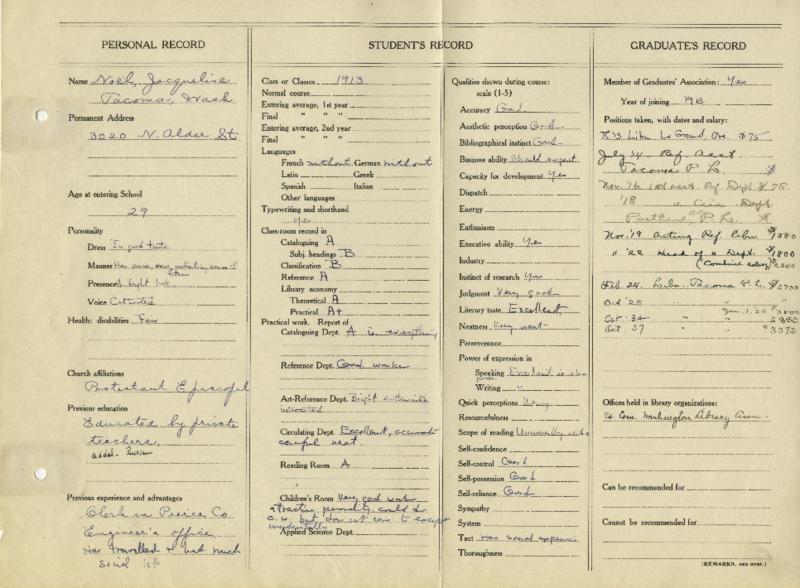 PERSONAL RECORD
Name Noel, Jacqueline
Tacoma, Wash.
Permanent Address
3020 N. Alder St.
Age at entering School
29
Personality
Dress In good taste
Manner Has
Presence
Voice Cultivated
Health: disabilities Fair
Church affiliations
Protestant Episcopal
Previous education
Educated by private
teachers.
Previous experience and advantages
Clerk in Pierce Co.
Engineer's office
Has travelled & had much
social life
STUDENT'S RECORD
Class or Classes 1913
Normal course
Entering average, 1st year
Final " " "
Entering average, 2nd year
Final " " "
Languages
French without German without
Latin Greek
Spanish Italian
Other languages
Typewriting and shorthand
Yes
Class-room record in
Cataloguing A
Subj. headings B
Classification B
Reference A
Library economy
Theoretical A
Practical A+
Practical work. Report of
Cataloguing Dept. A in everything
Reference Dept. Good worker
Art-Reference Dept. Bright
interested
Circulating Dept. Excellent, accurate
careful neat.
Reading Room A
Children's Room Very good worker
attractive personality could do
c.w. but does not care to except
incidentally
Applied Science Dept.
Qualities shown during course:
scale (1-5)
Accuracy Good
Aesthetic perception Good
Bibliographical instinct Good
Business ability Should expect
Capacity for development Yes
Dispatch
Energy
Enthusiasm
Executive ability Yes
Industry
Instinct of research Yes
Judgment Very good
Literary taste Excellent
Neatness Very neat
Perseverance
Power of expression in
Speaking
Writing "
Quick perceptions
Resourcefulness
Scope of reading Unusually wide
Self-confidence
Self-control Good
Self-possession Good
Self-reliance Good
Sympathy
System
Tact Has social experience
Thoroughness
GRADUATE'S RECORD
Member of Graduates' Association: Yes
Year of joining 1913
Positions taken, with dates and salary:
'13 Libn. La Grand, Ore. $75
July '14 Ref. Asst.
Tacoma P. L. $
Nov. '16 1st asst. Ref. Dept. $75
'18 " Circ. Dept
Portland P. L. $
Nov. '19 Acting Ref. Libn. $1380
" '22 Head of " Dept. $1800
(Combined salary) $2240
Feb. 24. Libn. Tacoma P. L. $2700
Oct '25 " " "
Jan. 1, '26
Oct. 34 " "
Oct 37 " " $3372
Offices held in library organizations:
Washington Library Assn.
Can be recommended for
Cannot be recommended for
(REMARKS, see over.)